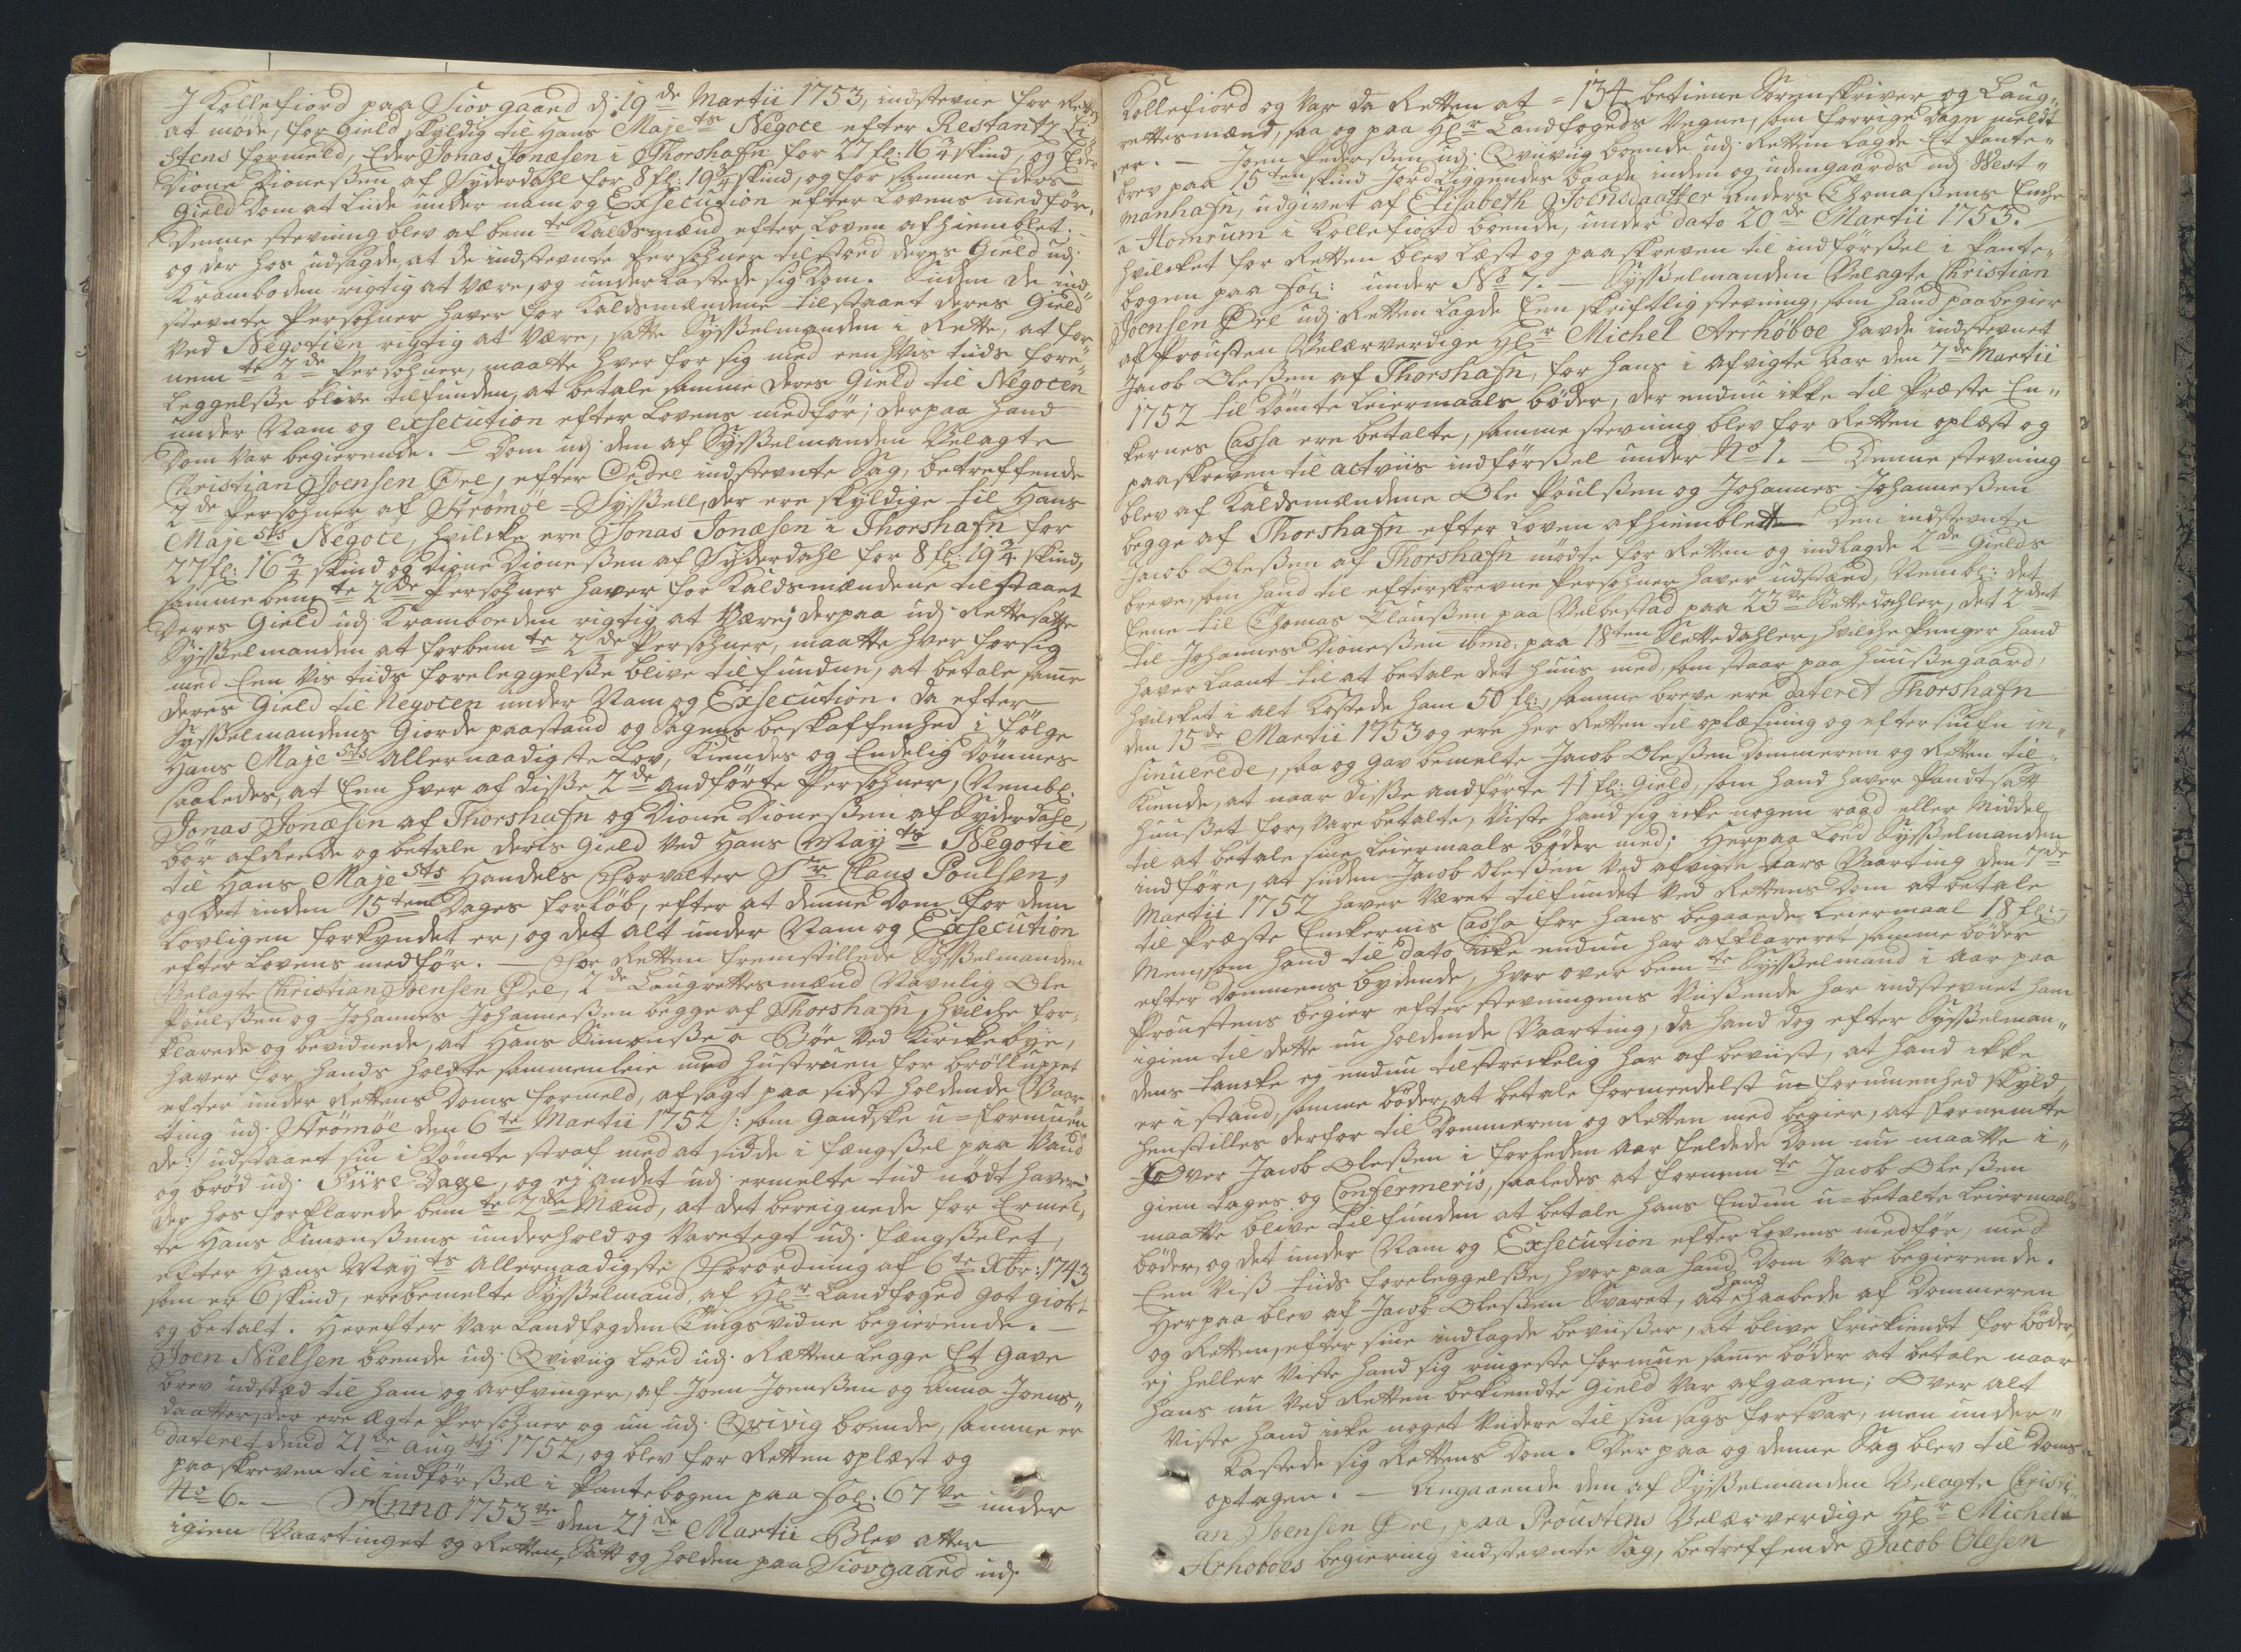 I Kollefiord paa Siovgaard d: 19de Martii 1753, indstevne for Retten
at möde, for gield skyldig til Hans Majets Negoce efter Restantz Li-
stens formeld, Eder Jonas Jonæsen i Thorshafn for 27 fl: 16¾ skind, og Eder
Dione Dioneßen af Syderdahl for 8 fl: 19¾ skind, og for samme Eders
gield Dom at liide under nam og Exsecution efter Lovens medför.
Denne stevning blev af bemte Kaldsmænd efter Loven afhiemblet.
og der hos udsagde, at de indstevnte Persohner tilstoed deres Gield udj
Kramboden rigtig at være, og underkastede sig Dom. Siden de ind-
stevnte Persohner haver for Kaldsmændene tilstaaet deres Gield
ved Negotien rigtig at være, satte Sysselmanden i Rette, at for
nemte 2de Persohner, maatte hver for sig med een vis tiids fore-
leggelße blive tilfunden, at betale samme deres Gield til Negocen
under Nam og exsecution efter Lovens medför; derpaa hand
Dom var begierende. — Dom udj den af Sysselmanden Velagte
Christian Joensen Öre, efter Ordre indstevnte Sag, betreffende
2de Persohner af Strömöe-Sysßell, der ere skyldige til Hans
Majests Negoce, hvilcke ere Jonas Jonæsen i Thorshafn for
27 fl: 16¾ skind og Dione Dioneßen af Syderdahl for 8 fl: 19¾ skind,
samme bemte 2de Persohner haver for Kaldsmændene tilstaaet
deres Gield udj Kramboeden rigtig at være; derpaa udj Rette satte
Sysselmanden at forbemte 2de Persohner, maatte hver for sig
med Een vis tids foreleggelße blive tilfundne, at betale same
deres Gield til Negocen under Nam og Exsecution. Da efter
Sysselmandens giorde paastand og Sagens beskaffenhed i fölge
Hans Majests allernaadigste Lov, Kiendes og Endelig Dömmes
saaledes, at Een hver af disße 2de andförte Persohner, Nembl:
Jonas Jonæsen af Thorshafn og Dione Dioneßen af Syderdahl,
bör afsterde og betale deris gield ved Hans Mayts Negotie
til Hans Majests Handels Forvalter Sr. Claus Poulsen,
og det inden 15ten Dages forlöb, efter at denne Dom for dem
Lovligen forkyndet er, og det alt under Nam og Exsecution
efter Lovens medför. — For Retten fremstillede Sysßelmanden
Velagte Christian Joensen Öre, 2de Laugrettesmænd Navnlig Ole
Poulsßen og Johannes Johanneßen begge af Thorshafn, hvilche for-
klarede og bevidnede, at Hans Simonsße a Böe ved Kirckebye,
haver for hands holdte sammenleie med hustruen for brölluppet
efter under Rettens Doms formeld, afsagt paa sidst holdende Vaar-
ting udj Strömöe den 6te Martii 1752 /: som gandske u-formuen-
de :/ udstaaet sin i Dömte straf med at sidde i fængsßel paa Vand
og bröd udj Fiire Dage, og ej andet udj ermelte tid nödt haver;
der hos forklarede bemte 2de Mænd, at det bereignede for Ermel-
te Hans Simonsßens underhold og Varetegt udj fængsßelet,
efter Hans Mayts Allernaadigste Forordning af 6te Xbr: 1743
som er 6 skind, erebemelte Sysßelmand af Hr Landfoged got giort
og betalt. Herefter var Landfogden Tingsvidne begierende. —
Joen Nielsen boende udj Qviviig loed udj Rætten Legge Et gave
brev udstæd til ham og arfvinger, af Joen Joensßen og Anna Joens-
daatter, der ere Ægte Persohner og nu udj Qvivig boende, samme er
dateret dend 21de Augstj 1752, og blev for Retten oplæst og
paaskreven til indförsßel i Pantebogen paa Fol: 67ve under
No 6. — Anno 1753ve den 21de Martii Blev atter
igien Vaartinget og Retten, Satt og holden paa Siovgaard udj
Kollefiord og var da Retten at = 134 betiene Sorenskriver og Laug-
rettesmænd, saa og paa Hr Landfogeds Vegne, som forrige Dagn meldt
er. — Joen Pedersßen udj Qviiviig boende udj Retten Lagde Et Pante-
brev paa 15ten skind Jord Liggendes baade inden og udengaards udj West-
manhafn, udgivet af Elisabeth Joensdaatter Anders Thomaßens Encke
a Homrum i Kollefiord boende, under dato 20de Martii 1753.
hvilcket for Retten blev Læst og paaskreven til indförßel i Pante-
bogen paa Fol: under No 7. — Sysßelmanden Velagte Christian
Joensen Öre udj Retten Lagde Een skriftlig stevning, som hand paa begier
af Prousten Velærverdige Hr Michel Arrhöboe havde indstevnet
Jacob Oleßen af Thorshafn, for hans i afvigte Aar den 7de Martii
1752 til Dömte Leiermaals böder, der endnu ikke til Præste En-
kernes Cassa ere betalte, samme stevning blev for Retten oplæst og
paaskreven til actviis indförßel under No 1. — Denne stevning
blev af Kaldsmændene Ole Poulsßen og Johannes Johanneßen
begge af Thorshafn efter Loven afhiemblet. Den indstevnte
Jacob Oleßen af Thorshafn mödte for Retten og indlagde 2de Gields
breve, som hand til efterskrevne Persohner haver udstæd, Nembl: det
Eene til Thomas Clausßen paa Velbestad paa 23ve Slettedahler, det 2det
til Johannes Dioneßen ibmd: paa 18ten Slettedahler, hvilche Penger hand
haver Laant til at betale det huus med, som staar paa Huußegaard,
hvilcket i alt kostede ham 50 fl:, samme breve ere dateret Thorshafn
den 15de Martii 1753 og ere her Retten til oplæsning og eftersiufn in-
sinuerede, saa og gav bemelte Jacob Oleßen Dommeren og Retten til-
kiende, at naar disße andförte 41 fl: Gield, som hand haver Pandtsatt
huußet for, vare betalte, viste hand sig icke nogen raad eller Middel
til at betale sine Leiermaals böder med; Herpaa Loed Sysßelmanden
indföre, at siden Jacob Oleßen ved afvigte Aars Vaarting den 7de
Martii 1752 haver været tilfundet ved Rettens Dom at betale
til Præste Enckernis Cassa for hans begaaede Leiermaal 18 fl:,
Men, som hand til dato icke endnu har afklareret samme böder
efter Dommens bydende, hvor over bemte Sysßelmand i Aar paa
Proustens begier efter stevningens Viißende har indstevnet ham
igien til dette nu holdende Vaarting, da hand dog efter Sysßelman-
dens tancke ej endnu tilstreckelig har af beviist, at hand ikke
er i stand, samme böder, at betale formedelst u-formuenhed skyld,
henstilles derfor til Dommeren og Retten med begier, at fornemte
Over Jacob Oleßen i forleden Aar feldede Dom nu maatte i-
gien tages og Confermeris, saaledes at fornemte Jacob Oleßen
maatte blive tilfunden at betale hans Endnu u-betalte Leiermaals
böder, og det under Nam og Exsecution efter Lovens medför, med
Een Viß tiids foreleggelße, hvor paa hand Dom var begierende.
Herpaa blev af Jacob Oleßen Svaret, at hand haabede af Dommeren
og Retten, efter sine indlagde beviißer, at blive friekiendt for böder,
ej heller viste hand sig ringeste formue same böder at betale naar
hans nu ved Retten bekiendte Gield var afgaaen; Over alt
viste hand icke noget videre til sin sags forsvar, men under-
kastede sig Rettens Dom. Der paa og denne Sag blev til Doms
optagen. — Angaaende den af Sysßelmanden Velagte Christi-
an Joensen Öre, paa Proustens Velærverdige Hr Michel
Arhoboes begiering indstevnte Sag, betreffende Jacob Olesen